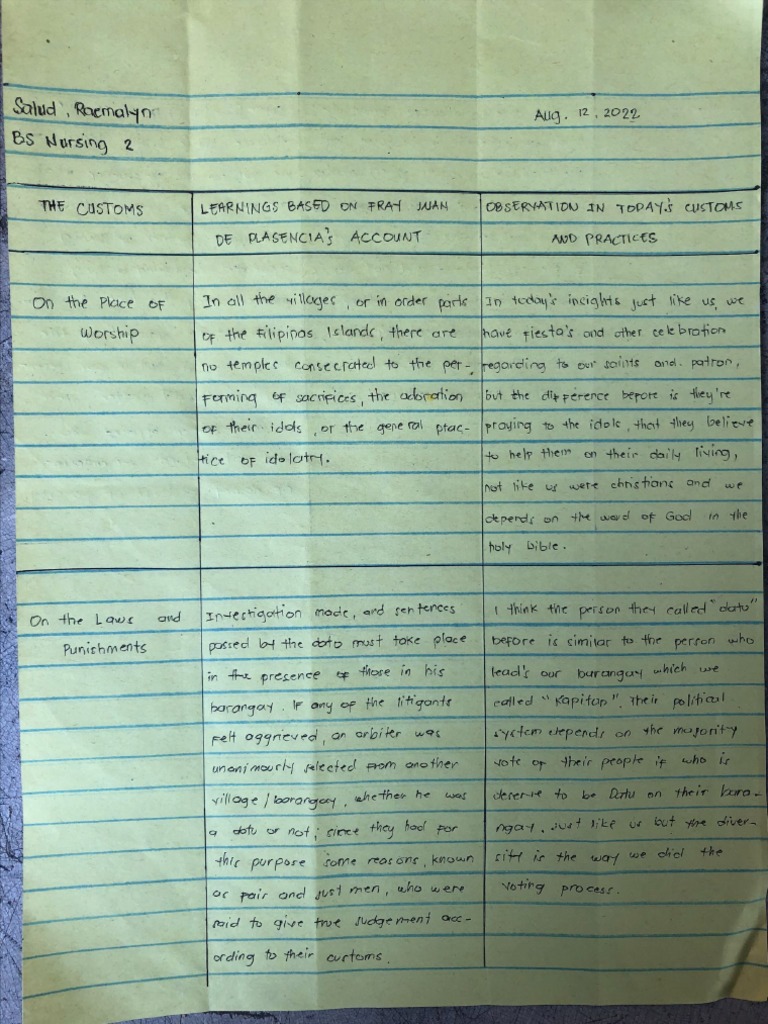 Salud, Raemalyn
Aug. 12, 2022
BS Nursing 2
THE CUSTOMS
LEARNINGS BASED ON FRAY JUAN
DE PLASENCIA's ACCOUNT
OBSERVATION IN TODAY'S CUSTOMS
AND PRACTICES
On the Place of
Worship
In all the villages, or in order parts
of the Filipinas Islands, there are
no temples consecrated to the per-
forming of sacrifices, the adoration
of their idols, or the general prac-
tice of idolatry.
In today's insights just like us, we
have fiesta's and other celebration
regarding to our saints and patron,
but the difference before is they're
praying to the idols, that they believe
to help them on their daily living,
not like us were christians and we
depends on the word of God in the
holy bible.
On the Laws and
Punishments
Investigation made, and sentences
passed by the dato must take place
in the presence of those in his
barangay. If any of the litigants
felt aggrieved, an arbiter was
unanimously selected from another
village/barangay, whether he was
a datu or not; since they had for
this purpose some reasons, known
as fair and just men, who were
said to give true judgement acc-
ording to their customs.
I think the person they called "datu"
before is similar to the person who
lead's our barangay which we
called "Kapitan". Their political
system depends on the majority
vote of their people if who is
deserve to be Datu on their bara-
ngay. Just like us but the diver-
sity is the way we did the
voting process.